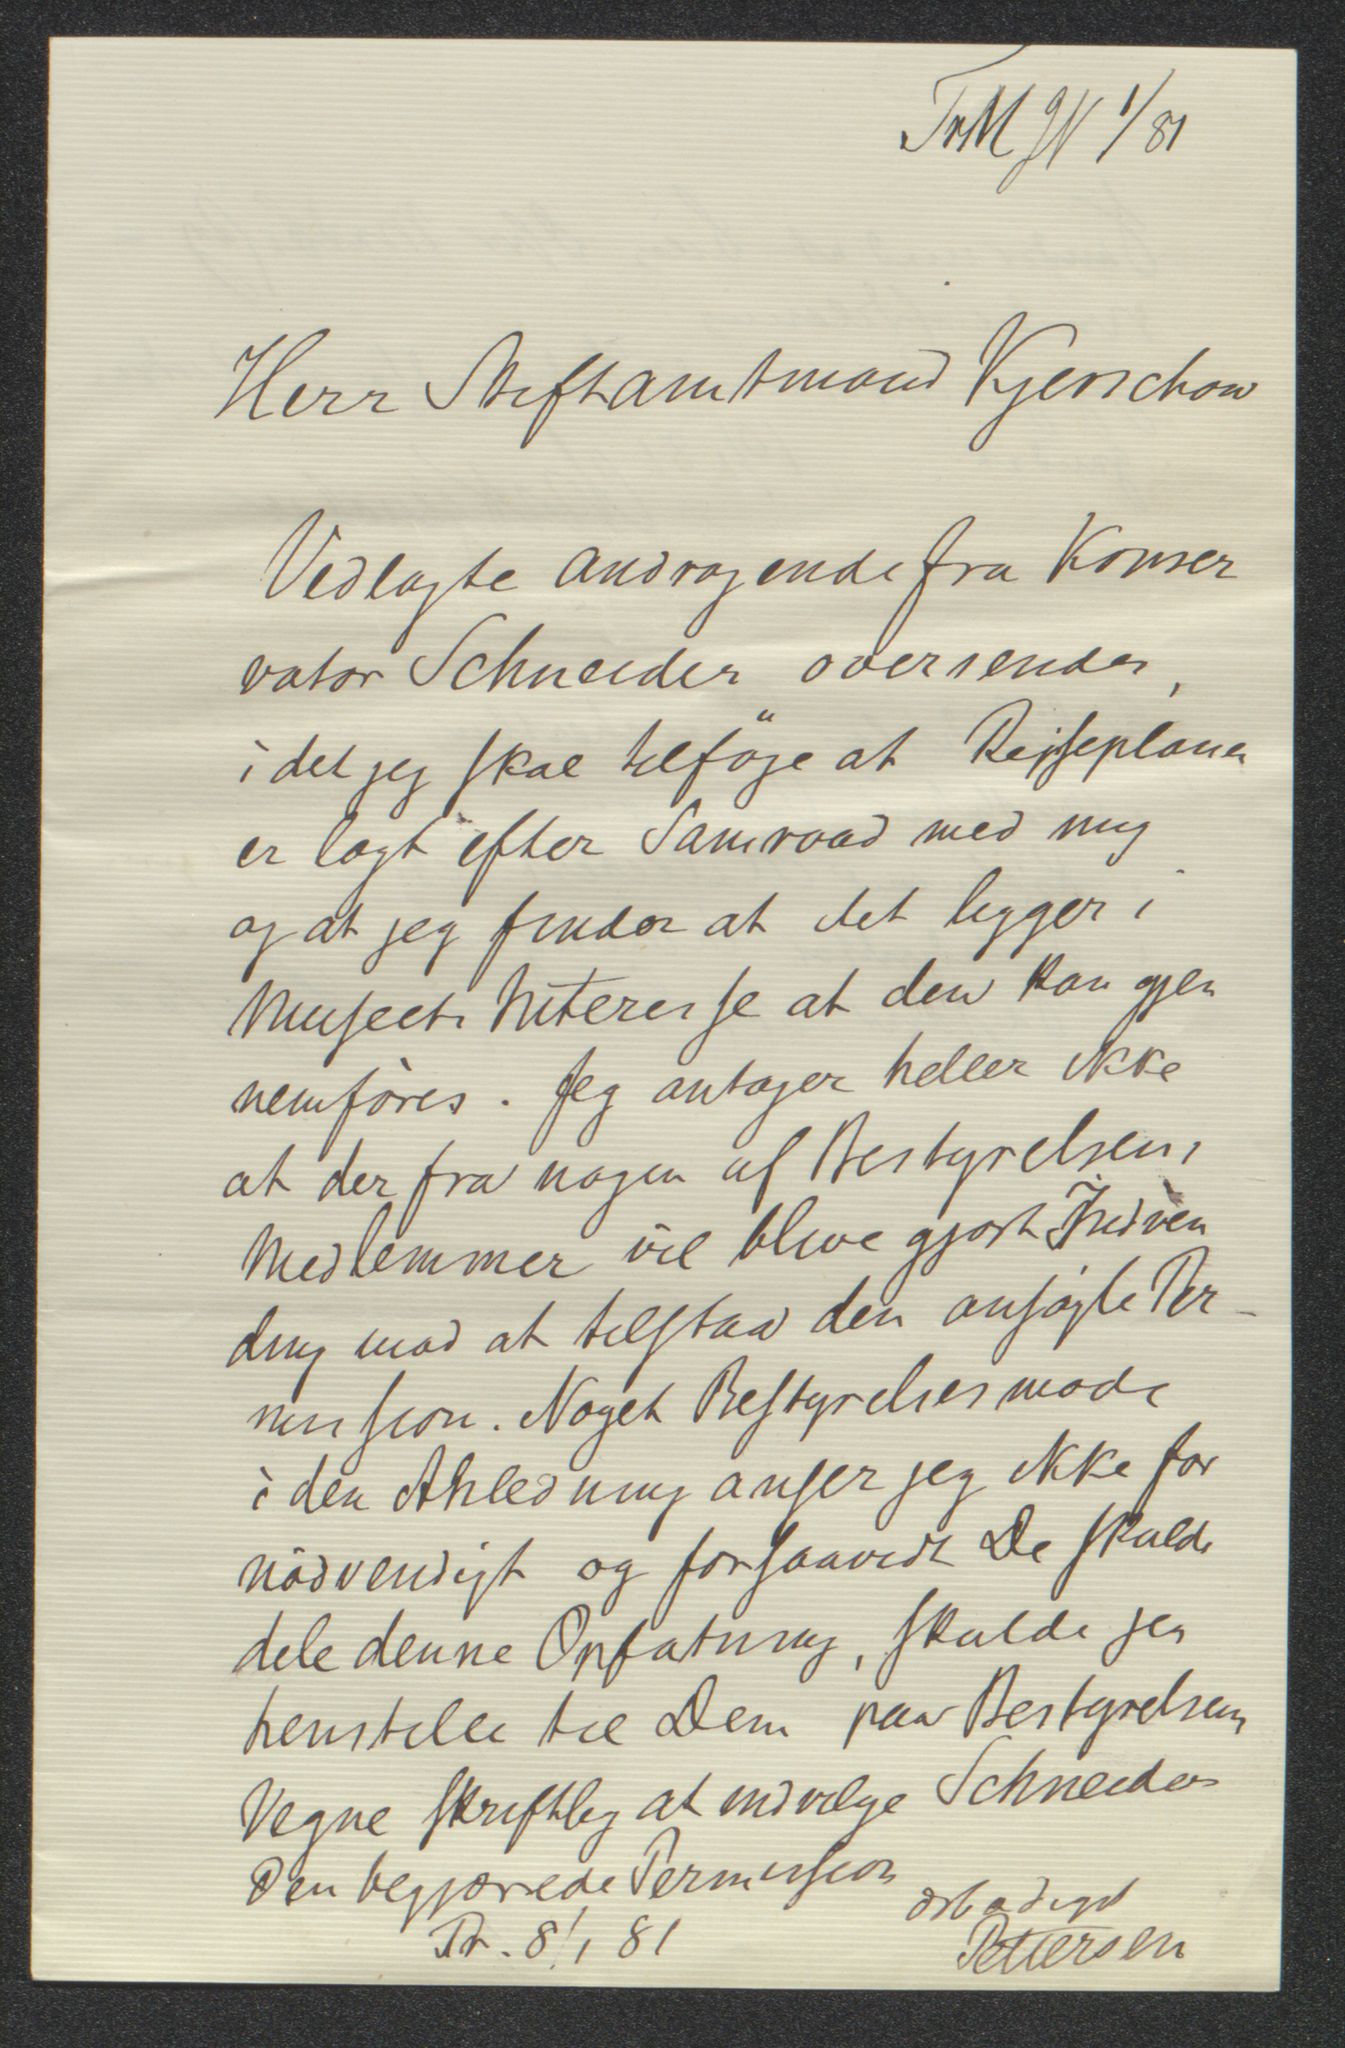 TrM JN 1/81
Herr Stiftamtmand Kjerschow
Vedlagte Andragende fra Konser
vator Schneider oversendes,
idet jeg skal tilföje at Rejseplanen
er lagt efter Samraad med mig
og at jeg finder at det ligger i
Museets Interesse at den kan gjen
nemföres. Jeg antager heller ikke
at der fra nogen af Bestyrelsens
Medlemmer vil blive gjort Indven
ding mod at tilstaa den ansögte Per-
mission. Noget Bestyrelsesmöde
i den Anledning anser jeg ikke for
nödvendigt og forsaavidt De skulde
dele denne Opfatning, skulde jeg
henstille til Dem paa Bestyrelsens
Vegne skriftlig at indvilge Schneider
den begjærede Permission
ærbødigst
Tr. 8/1 81
Pettersen